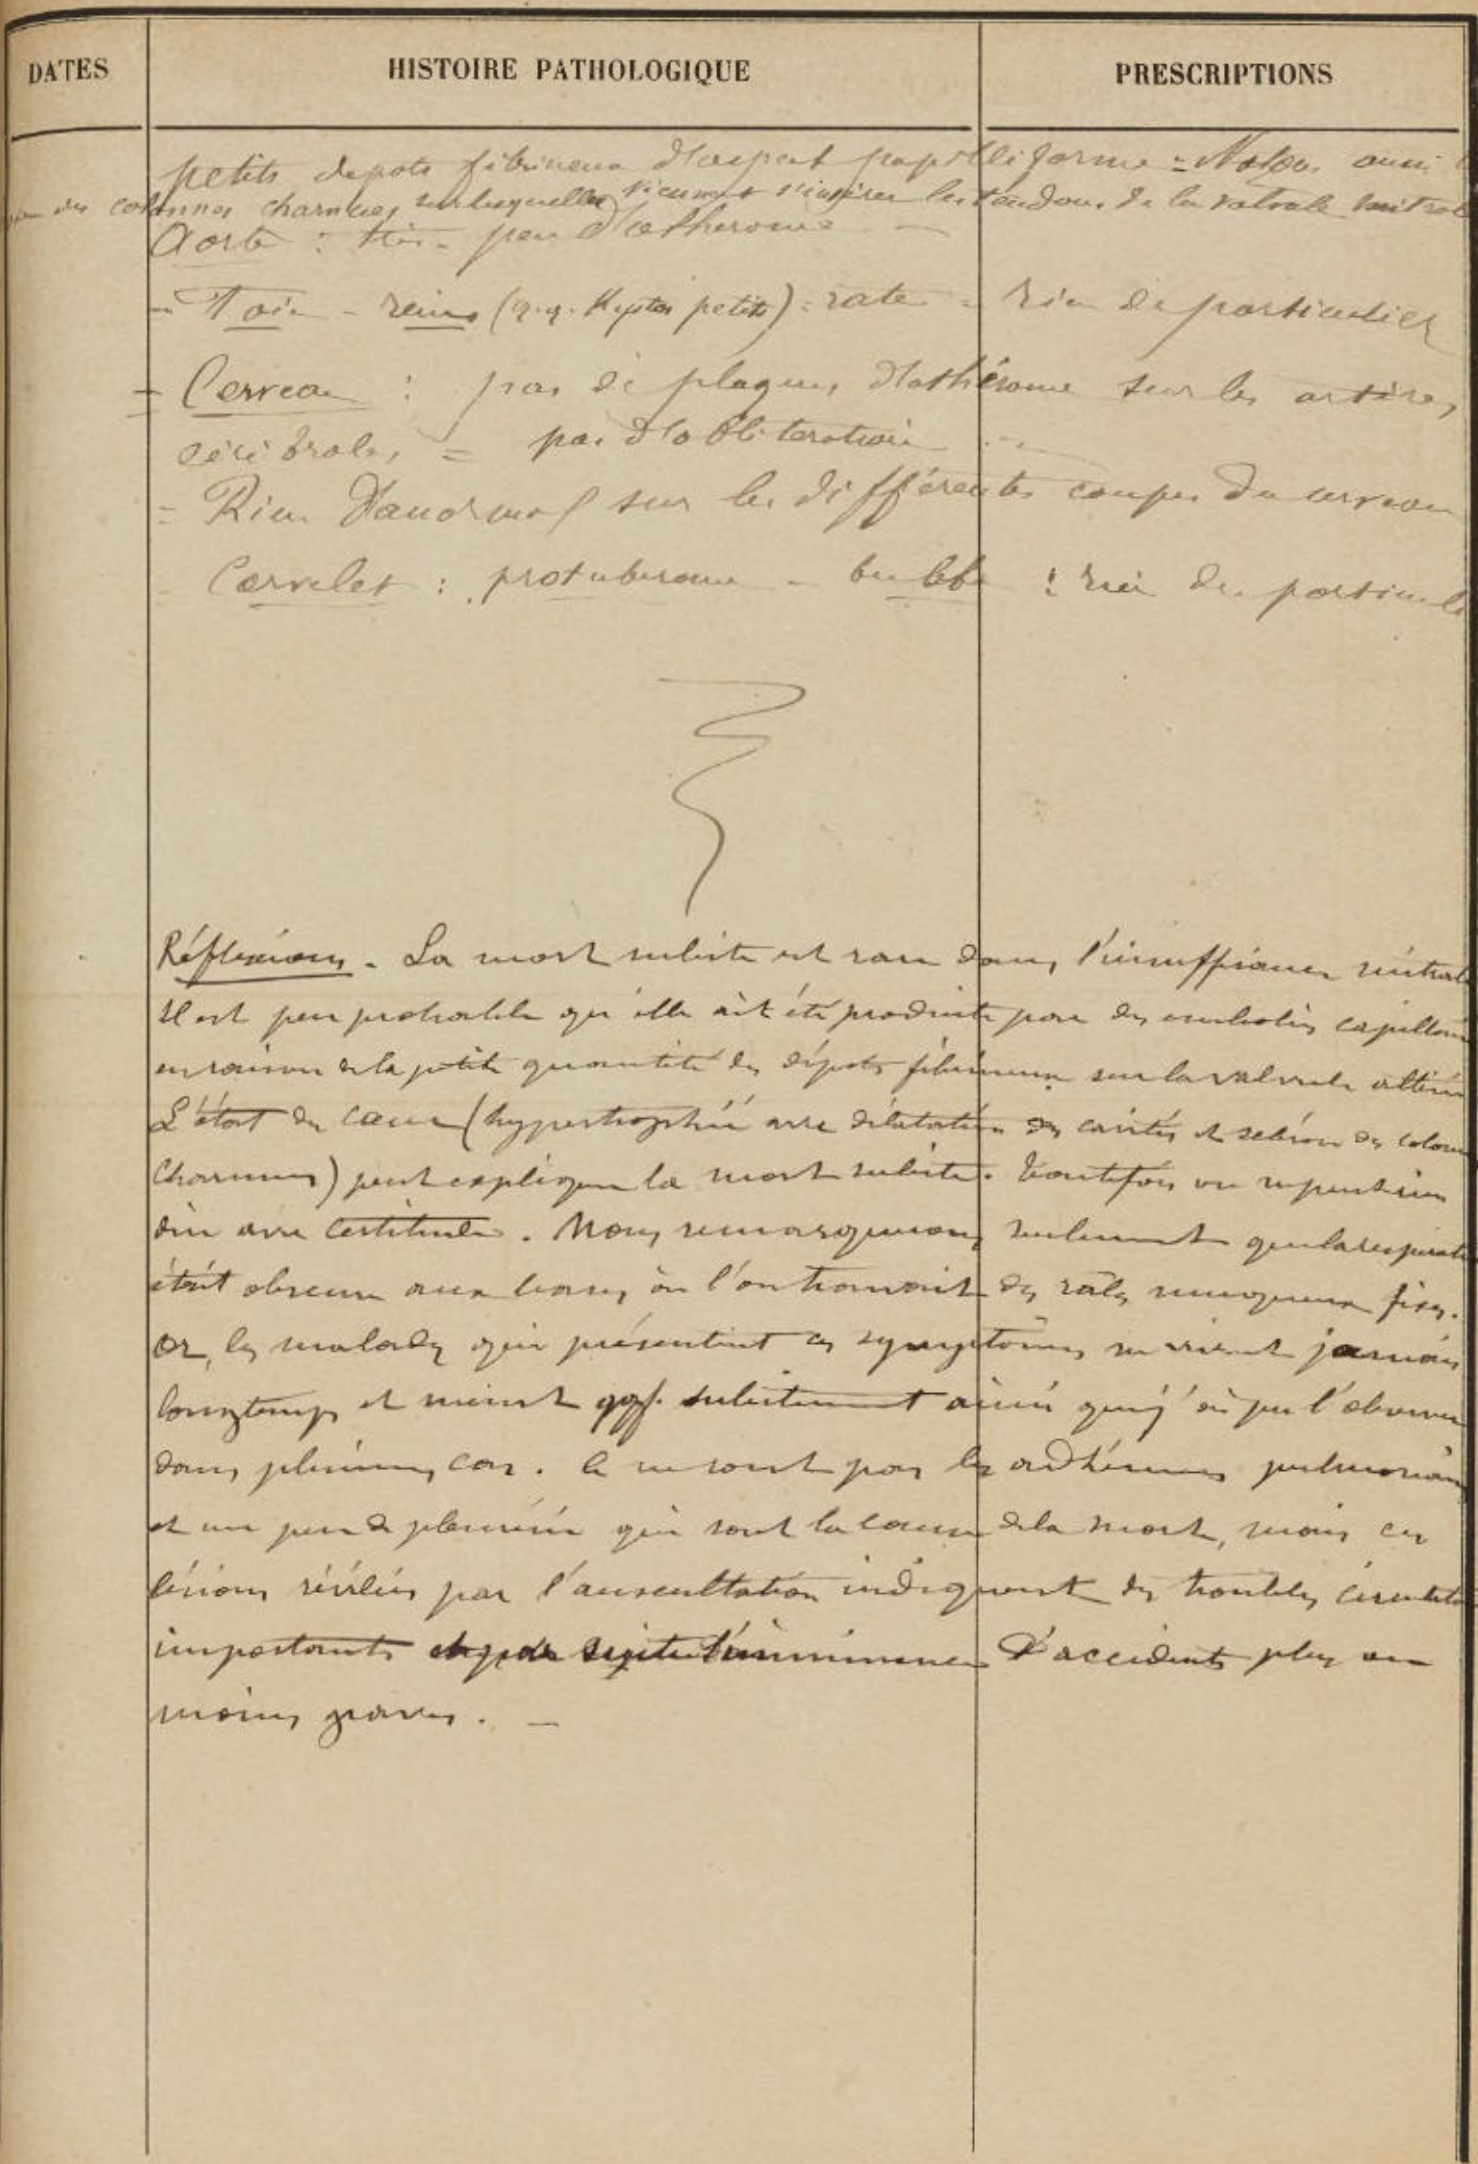 DATES HISTOIRE PATHOLOGIQUE PRESCRIPTIONS
petits depots fibrineux d'aspect papilliforme = Notons aussi
des colonnes charnues sur lesquelles viennent s'insérer les tendons de la valvule mitrale
Aorte : très peu d'atherome —
- Foie - reins (q.q. Kystes petits) = rate = rien de particulier
= Cerveau : pas de plaques d'athérome sur les artères
cérébrales = pas d'obliteration
= Rien d'anormal sur les différentes coupes du cerveau
Cervelet : protuberance - bulbe : rien de particulie
Réflexions - La mort subite est rare dans l'insuffisance mitrale
Il est peu probable qu'elle ait été produite par des embolies capillaires
en raison de la petite quantité des dépots fibrineux sur la valvule altérée
L'état du cœur (hypertrophié avec dilatation des cavités et sclérose des colonnes
charnues) peut expliquer la mort subite. Toutefois on ne peut rien
dire avec certitude. Nous remarquerons seulement que la respiration
était obscure aux bases où l'on trouvait des râles muqueux fixes.
or, les malades qui présentent ces symptômes ne vivent jamais
longtemps et meurent qqf. subitement ainsi que j'ai pu l'observer
dans plusieurs cas. Ce ne sont pas les adhérences pulmonaires
et un peu de pleurésie qui sont la cause de la mort, mais ces
lésions révélées par l'auscultation indiquent des troubles circulatoi
importants et par suite l'imminence d'accidents plus ou
moins graves. —